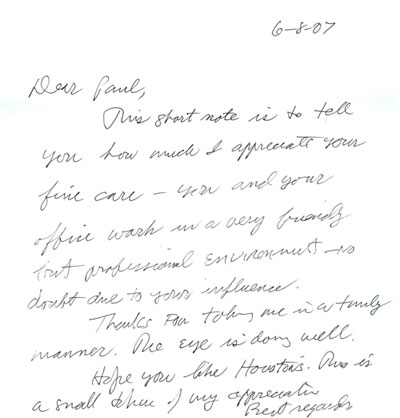 6-8-07
Dear Paul,
This short note is to tell
you how much I appreciate your
fine care – you and your
office work in a very friendly
but professional environment – no
doubt due to your influence.
Thanks for taking me in a timely
manner. The eye is doing well.
Hope you like Houston's. This is
a small token of my appreciation
Best regards